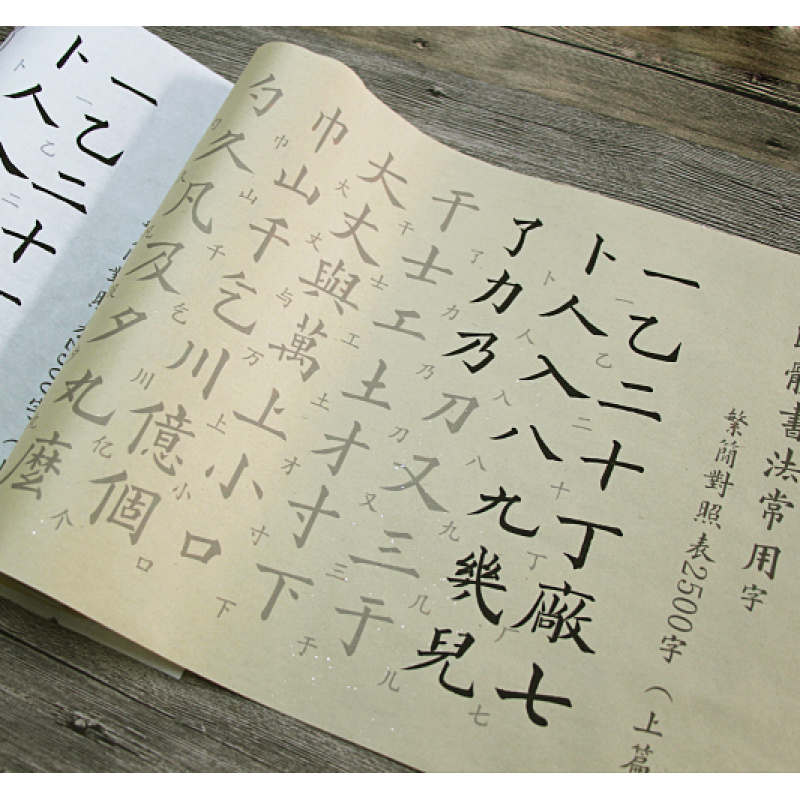 體書法常用字
繁簡對照表2500字（上篇
一乙二十丁廠七
一乙二十丁厂七
卜人入八九幾兒
卜人入八九几儿
了力乃刀又三于
了力乃刀又三于
干士工土才寸下
干士工土才寸下
大丈與萬上小口
大丈与万上小口
巾山千乞川億個
巾山千乞川亿个
勺久凡及夕丸麼
照
一乙二十
一乙二
卜人入
卜